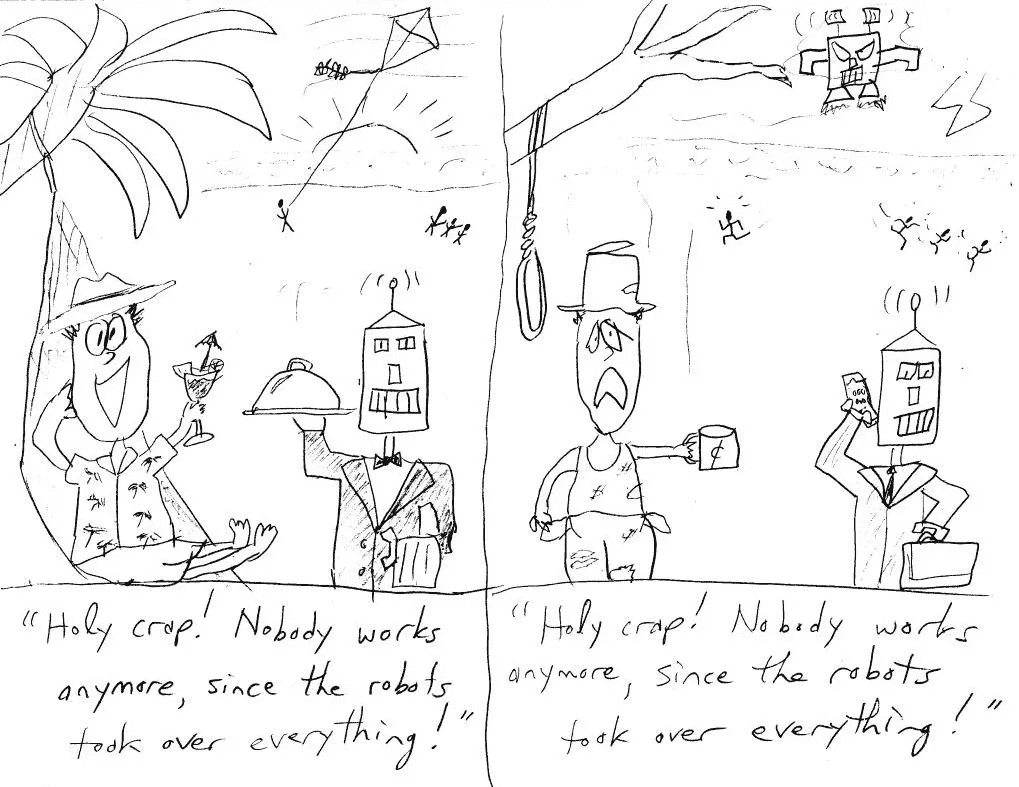 "Holy crap! Nobody works
anymore, since the robots
took over everything!"
¢
$
$
"Holy crap! Nobody works
anymore, since the robots
took over everything!"